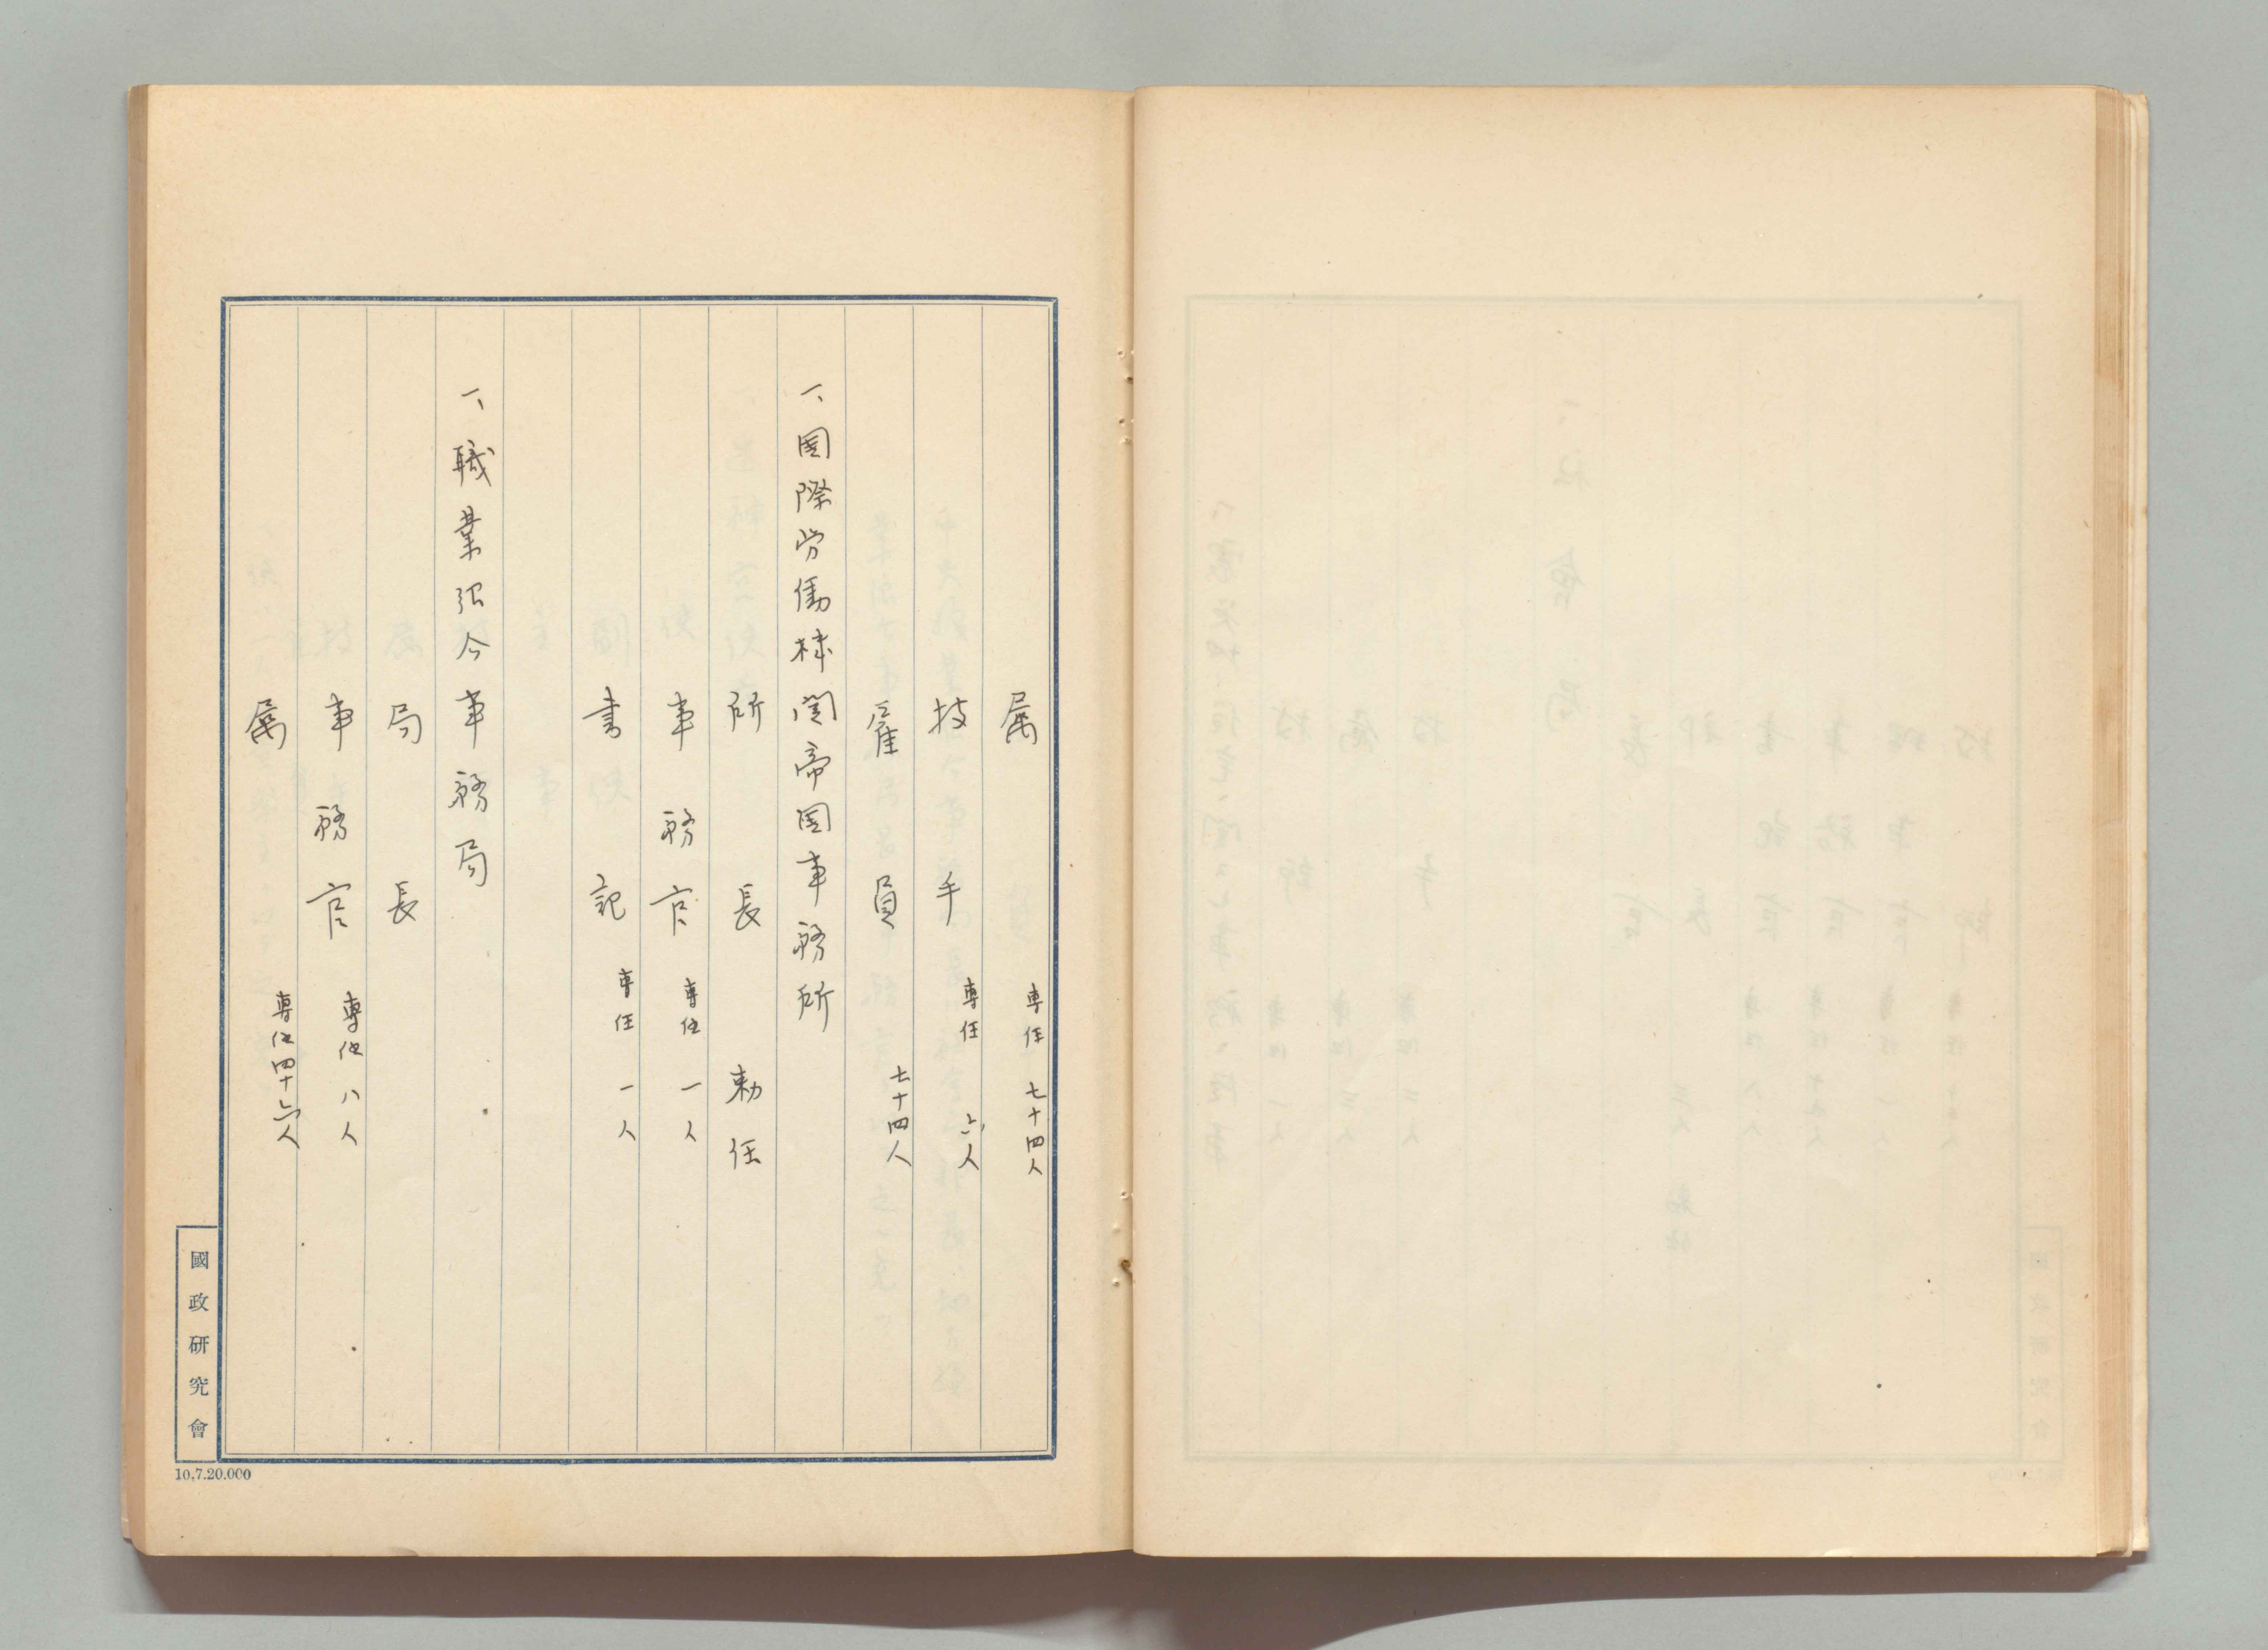 属　専任　七十四人
技手　専任　六人
雇員　七十四人
一、国際労働機関帝国事務所
所長　勅任
事務官　専任　一人
書記　専任　一人
一、職業紹介事務局
局長
事務官　専任　八人
属　専任四十六人
國政研究會
10,7.20.000